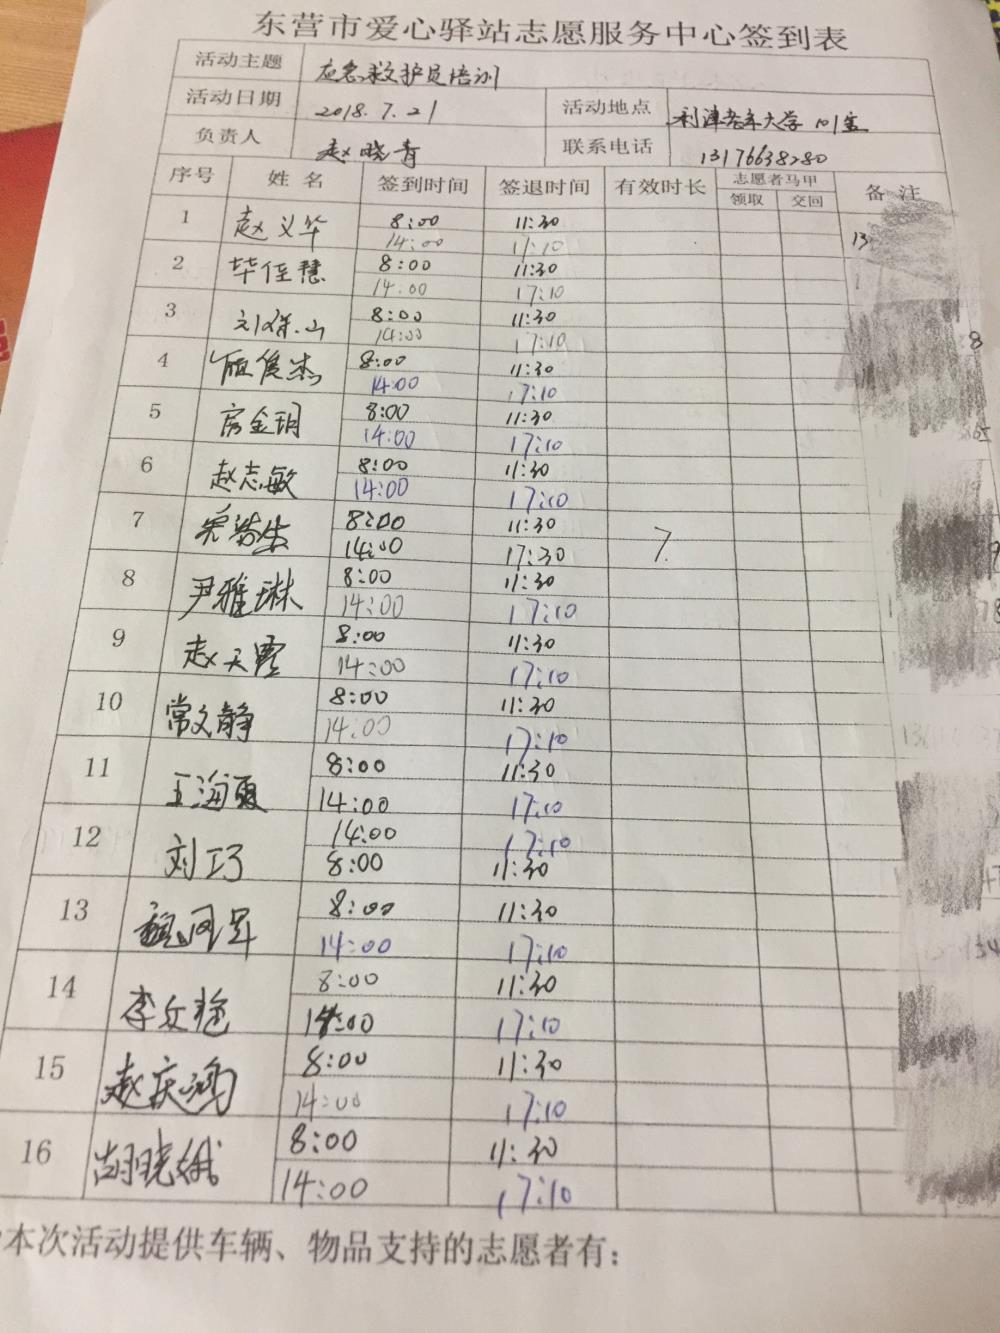 东营市爱心驿站志愿服务中心签到表
活动主题 应急救护员培训
活动日期 2018.7.21 活动地点 利津老年大学 101室
负责人 赵晓青 联系电话 13176638280
序号 姓名 签到时间 签退时间 有效时长 志愿者马甲 备注
领取 交回
1 赵义华 8:00 11:30
14:00 17:10 13
2 毕佳慧 8:00 11:30
14:00 17:10
3 刘 山 8:00 11:30
14:00 17:10 8
4 俊杰 8:00 11:30
14:00 17:10
5 房金玥 8:00 11:30
14:00 17:10
6 赵志敏 8:00 11:30
14:00 17:10
7 8:00 11:30
14:00 17:30 7.
8 尹雅琳 8:00 11:30
14:00 17:10 78
9 赵天霞 8:00 11:30
14:00 17:10
10 常文静 8:00 11:30
14:00 17:10
11 王海霞 8:00 11:30
14:00 17:10
12 刘巧 14:00 17:10
8:00 11:30
13 魏同军 8:00 11:30
14:00 17:10
14 李文艳 8:00 11:30
14:00 17:10
15 赵庆鸿 8:00 11:30
14:00 17:10
16 胡晓娥 8:00 11:30
14:00 17:10
本次活动提供车辆、物品支持的志愿者有：